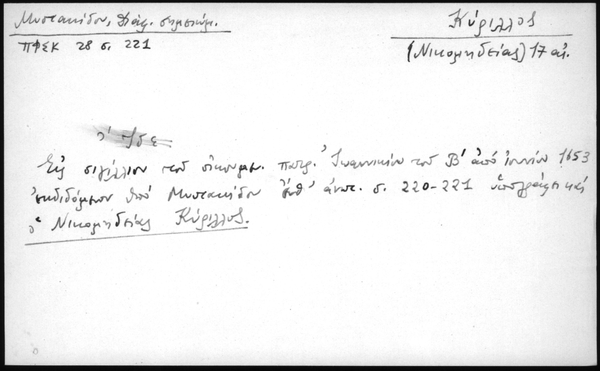 Μυστακίδου, Διάφ. σημειώμ.
ΠΦΣΚ 28 σ. 221
Κύριλλος
(Νικομηδείας) 17 αἰ.
Εἰς σιγίλλιον τοῦ οἰκουμ. πατρ. Ἰωαννικίου τοῦ Β' ἀπὸ ἰουνίου 1653
ἐκδιδόμενον ὑπὸ Μυστακίδου ἔνθ' ἀνωτ. σ. 220-221 ὑπογράφει καὶ
ὁ Νικομηδείας Κύριλλος.